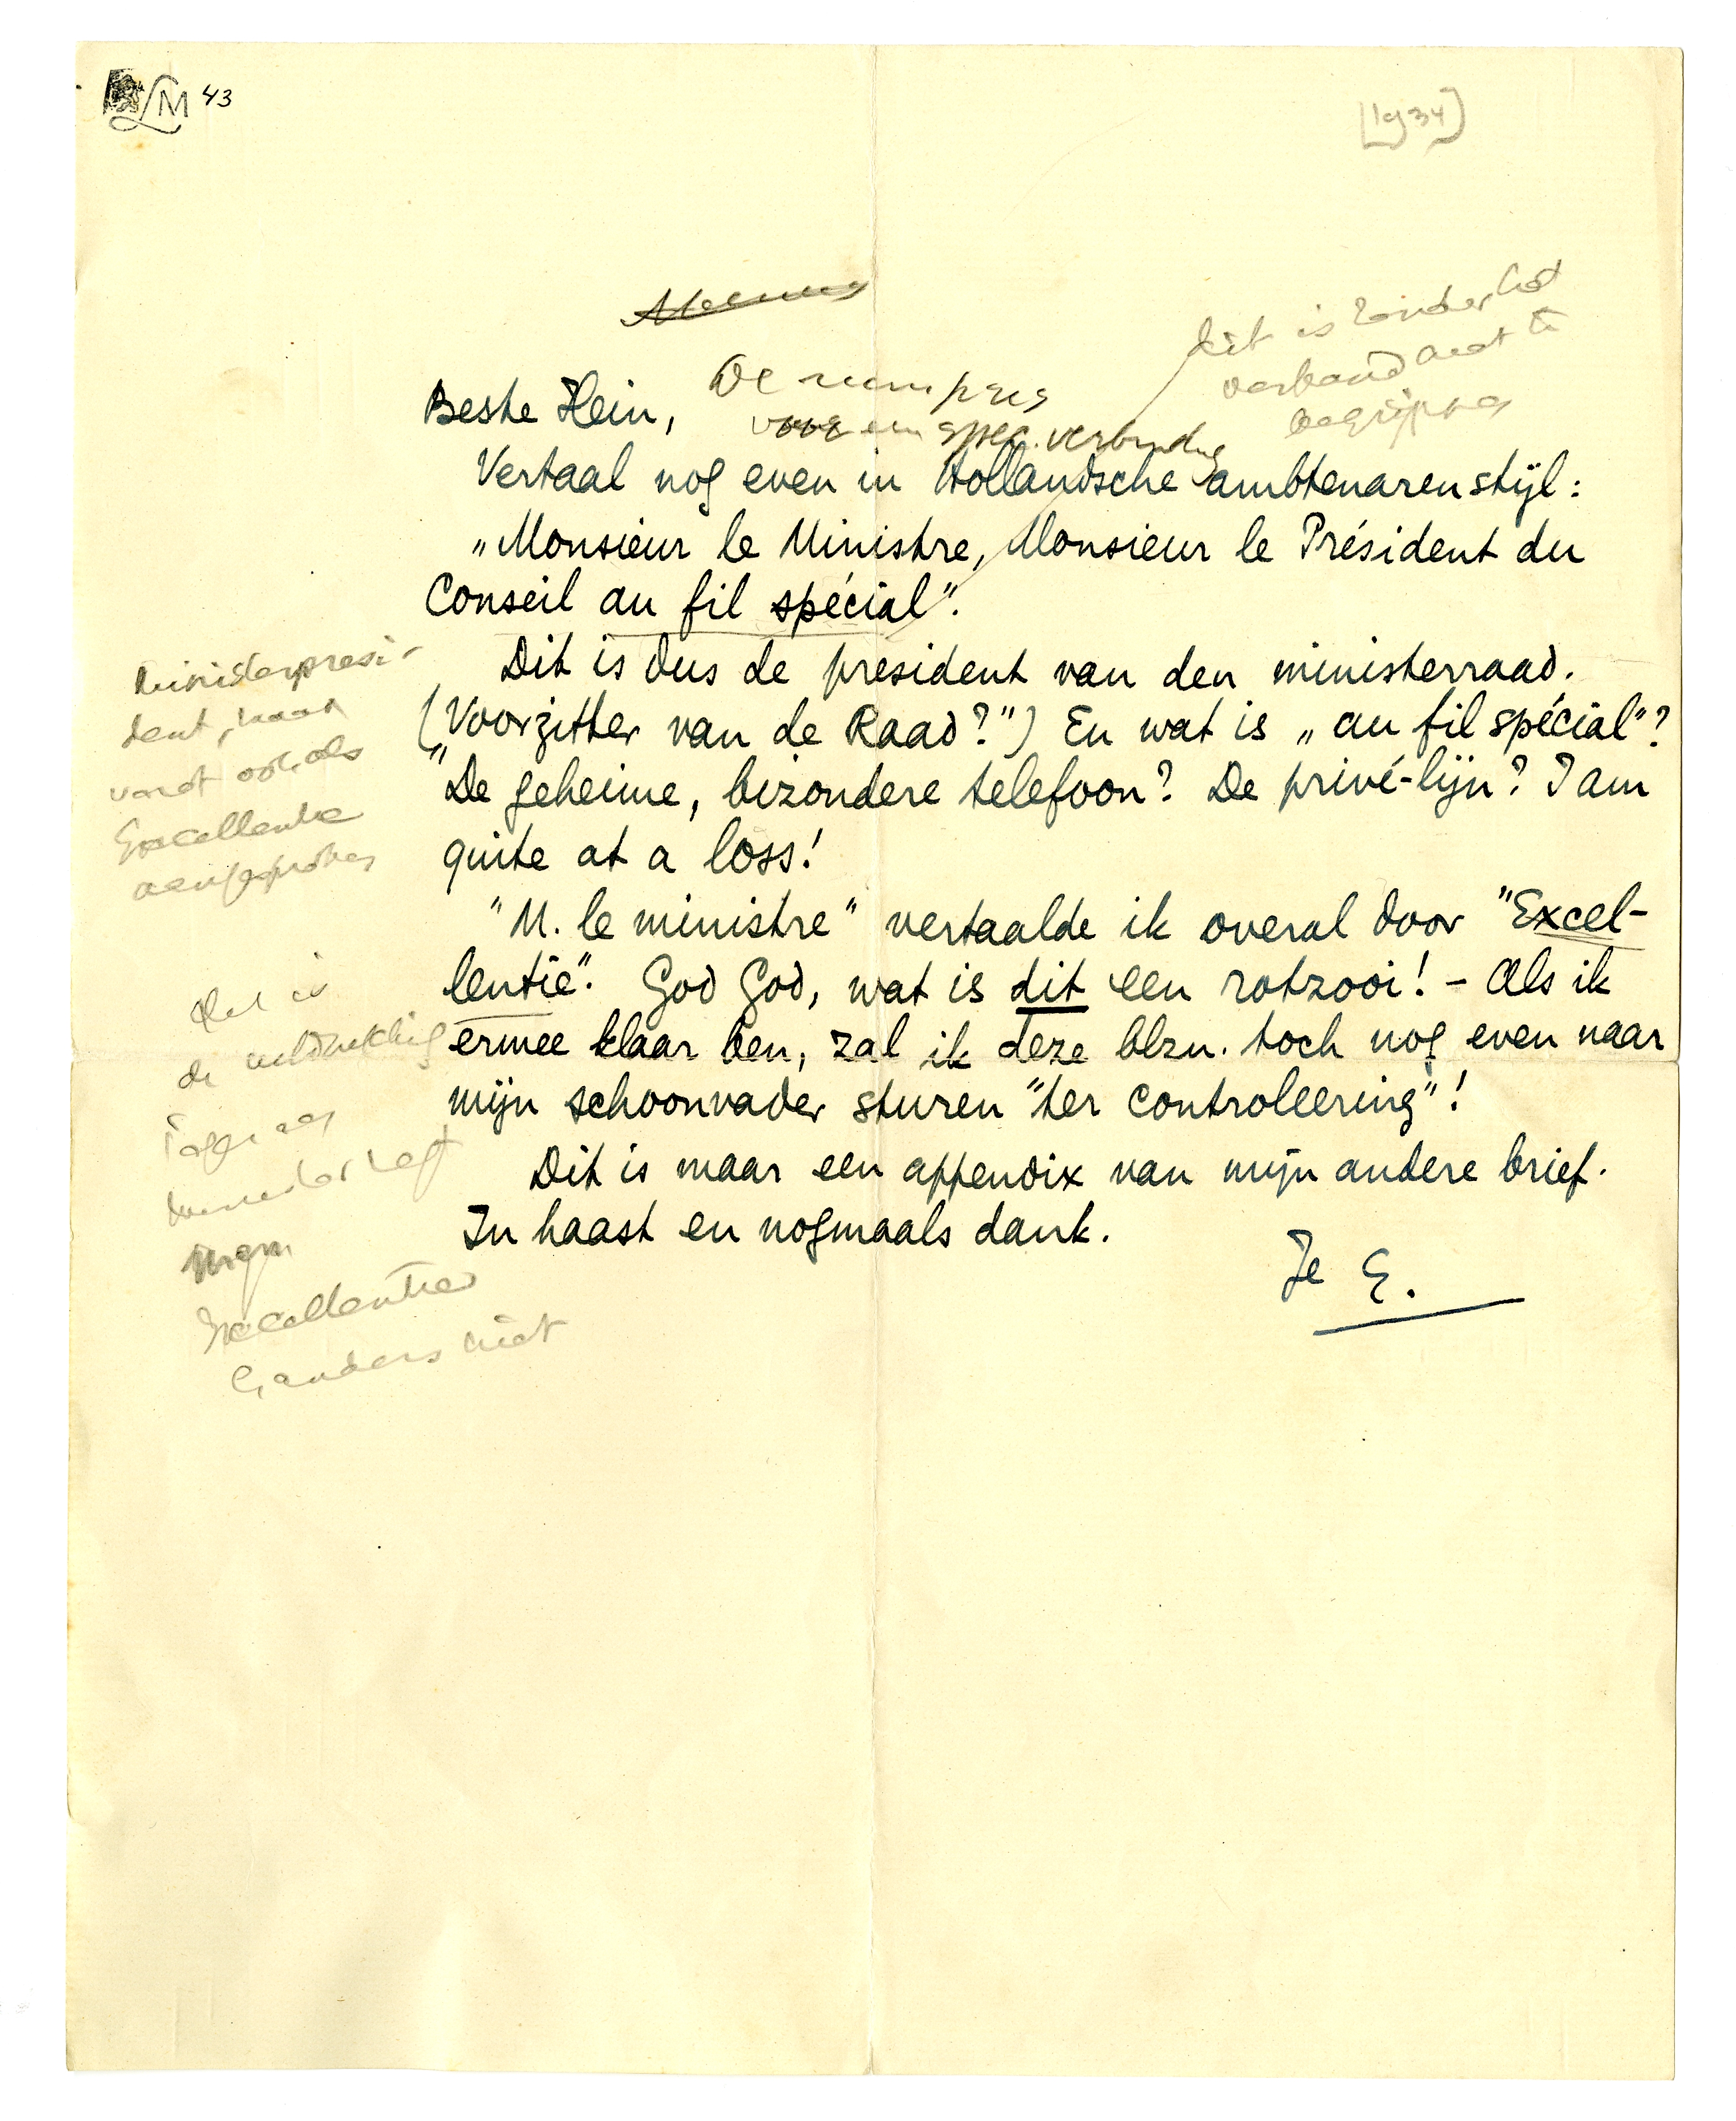 LM 43
[1934]
dit is zonder het
verband niet te
begrijpen
De min. pres
voor een spec. verbinding
Beste Hein,
Vertaal nog even in Hollandsche ambtenarenstijl:
„Monsieur le Ministre, Monsieur le Président du
Conseil au fil spécial".
Dit is dus de president van den ministerraad.
(„Voorzitter van de Raad?") En wat is „au fil spécial"?
De geheime, bizondere telefoon? De privé-lijn? I am
quite at a loss!
"M. le ministre" vertaalde ik overal door "Excel-
lentie". God God, wat is dit een rotzooi! - Als ik
ermee klaar ben, zal ik deze blzn. toch nog even naar
mijn schoonvader sturen "ter controleering"!
Dit is maar een appendix van mijn andere brief.
In haast en nogmaals dank.
Je E.
Ministerpresi-
dent, maar
wordt ook als
Excellentie
aangesproken
Dat is
de uitdrukking
Tegen een
minister zegt
men
Excellentie
& anders niet